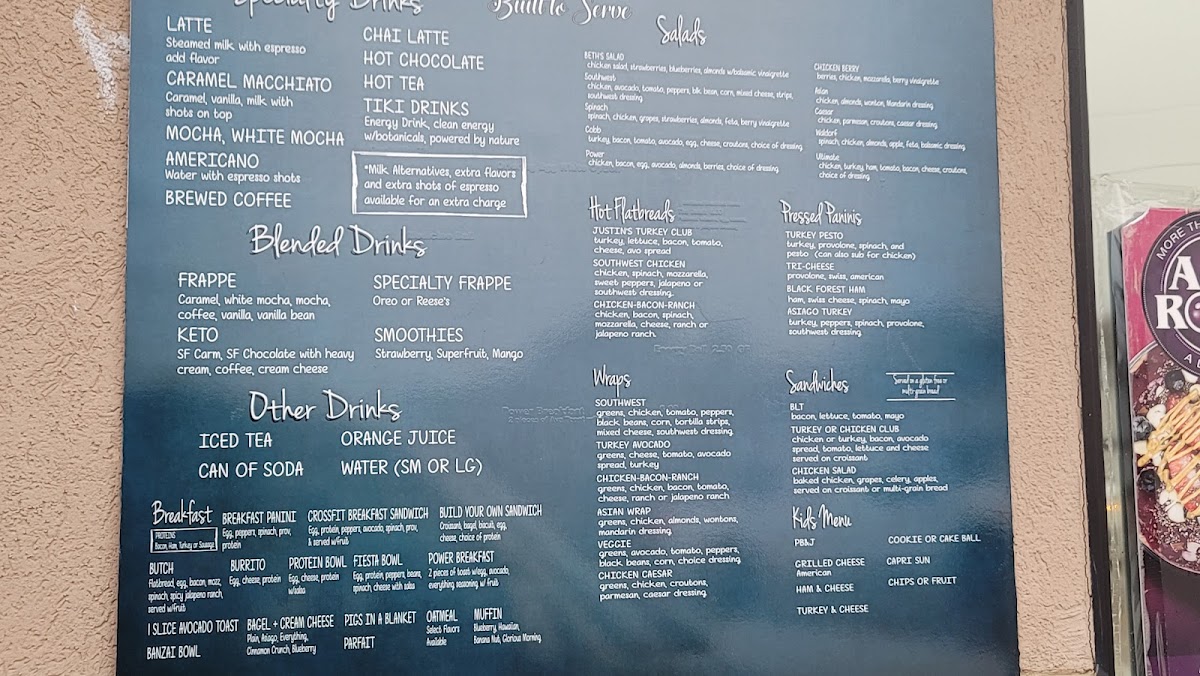 Specialty Drinks
Built to Serve
LATTE
Steamed milk with espresso
add flavor
CARAMEL MACCHIATO
Caramel, vanilla, milk with
shots on top
MOCHA, WHITE MOCHA
AMERICANO
Water with espresso shots
BREWED COFFEE
CHAI LATTE
HOT CHOCOLATE
HOT TEA
TIKI DRINKS
Energy Drink, clean energy
w/botanicals, powered by nature
*Milk Alternatives, extra flavors
and extra shots of espresso
available for an extra charge
Blended Drinks
FRAPPE
Caramel, white mocha, mocha,
coffee, vanilla, vanilla bean
KETO
SF Carm, SF Chocolate with heavy
cream, coffee, cream cheese
SPECIALTY FRAPPE
Oreo or Reese's
SMOOTHIES
Strawberry, Superfruit, Mango
Other Drinks
ICED TEA
CAN OF SODA
ORANGE JUICE
WATER (SM OR LG)
Breakfast
PROTEINS
Bacon, Ham, Turkey or Sausage
BREAKFAST PANINI
Egg, peppers, spinach, prov,
protein
CROSSFIT BREAKFAST SANDWICH
Egg, protein, peppers, avocado, spinach, prov,
& served w/fruit
BUILD YOUR OWN SANDWICH
Croissant, bagel, biscuit, egg,
cheese, choice of protein
BUTCH
Flatbread, egg, bacon, mozz,
spinach, spicy jalapeno ranch,
served w/fruit
BURRITO
Egg, cheese, protein
PROTEIN BOWL
Egg, cheese, protein
w/salsa
FIESTA BOWL
Egg, protein, peppers, beans,
spinach, cheese with salsa
POWER BREAKFAST
2 pieces of toast w/egg, avocado,
everything seasoning w/ fruit
1 SLICE AVOCADO TOAST
BANZAI BOWL
BAGEL + CREAM CHEESE
Plain, Asiago, Everything,
Cinnamon Crunch, Blueberry
PIGS IN A BLANKET
PARFAIT
OATMEAL
Select Flavors
Available
MUFFIN
Blueberry, Hawaiian,
Banana Nut, Glorious Morning
Salads
BETH'S SALAD
chicken salad, strawberries, blueberries, almonds w/balsamic vinaigrette
Southwest
chicken, avocado, tomato, peppers, blk. bean, corn, mixed cheese, strips,
southwest dressing
Spinach
spinach, chicken, grapes, strawberries, almonds, feta, berry vinaigrette
Cobb
turkey, bacon, tomato, avocado, egg, cheese, croutons, choice of dressing
Power
chicken, bacon, egg, avocado, almonds, berries, choice of dressing
CHICKEN BERRY
berries, chicken, mozzarella, berry vinaigrette
Asian
chicken, almonds, wonton, Mandarin dressing
Caesar
chicken, parmesan, croutons, caesar dressing
Waldorf
spinach, chicken, almonds, apple, feta, balsamic dressing
Ultimate
chicken, turkey, ham, tomato, bacon, cheese, croutons,
choice of dressing
Hot Flatbreads
JUSTIN'S TURKEY CLUB
turkey, lettuce, bacon, tomato,
cheese, avo spread
SOUTHWEST CHICKEN
chicken, spinach, mozzarella,
sweet peppers, jalapeno or
southwest dressing
CHICKEN-BACON-RANCH
chicken, bacon, spinach,
mozzarella, cheese, ranch or
jalapeno ranch.
Pressed Paninis
TURKEY PESTO
turkey, provolone, spinach, and
pesto (can also sub for chicken)
TRI-CHEESE
provolone, swiss, american
BLACK FOREST HAM
ham, swiss cheese, spinach, mayo
ASIAGO TURKEY
turkey, peppers, spinach, provolone,
southwest dressing
Wraps
SOUTHWEST
greens, chicken, tomato, peppers,
black, beans, corn, tortilla strips,
mixed cheese, southwest dressing.
TURKEY AVOCADO
greens, cheese, tomato, avocado
spread, turkey
CHICKEN-BACON-RANCH
greens, chicken, bacon, tomato,
cheese, ranch or jalapeno ranch
ASIAN WRAP
greens, chicken, almonds, wontons,
mandarin dressing.
VEGGIE
greens, avocado, tomato, peppers,
black, beans, corn, choice dressing.
CHICKEN CAESAR
greens, chicken, croutons,
parmesan, caesar dressing.
Sandwiches
Served on a gluten free or
multi-grain bread
BLT
bacon, lettuce, tomato, mayo
TURKEY OR CHICKEN CLUB
chicken or turkey, bacon, avocado
spread, tomato, lettuce and cheese
served on croissant
CHICKEN SALAD
baked chicken, grapes, celery, apples,
served on croissant or multi-grain bread
Kids Menu
PB&J
GRILLED CHEESE
American
HAM & CHEESE
TURKEY & CHEESE
COOKIE OR CAKE BALL
CAPRI SUN
CHIPS OR FRUIT
MORE TH